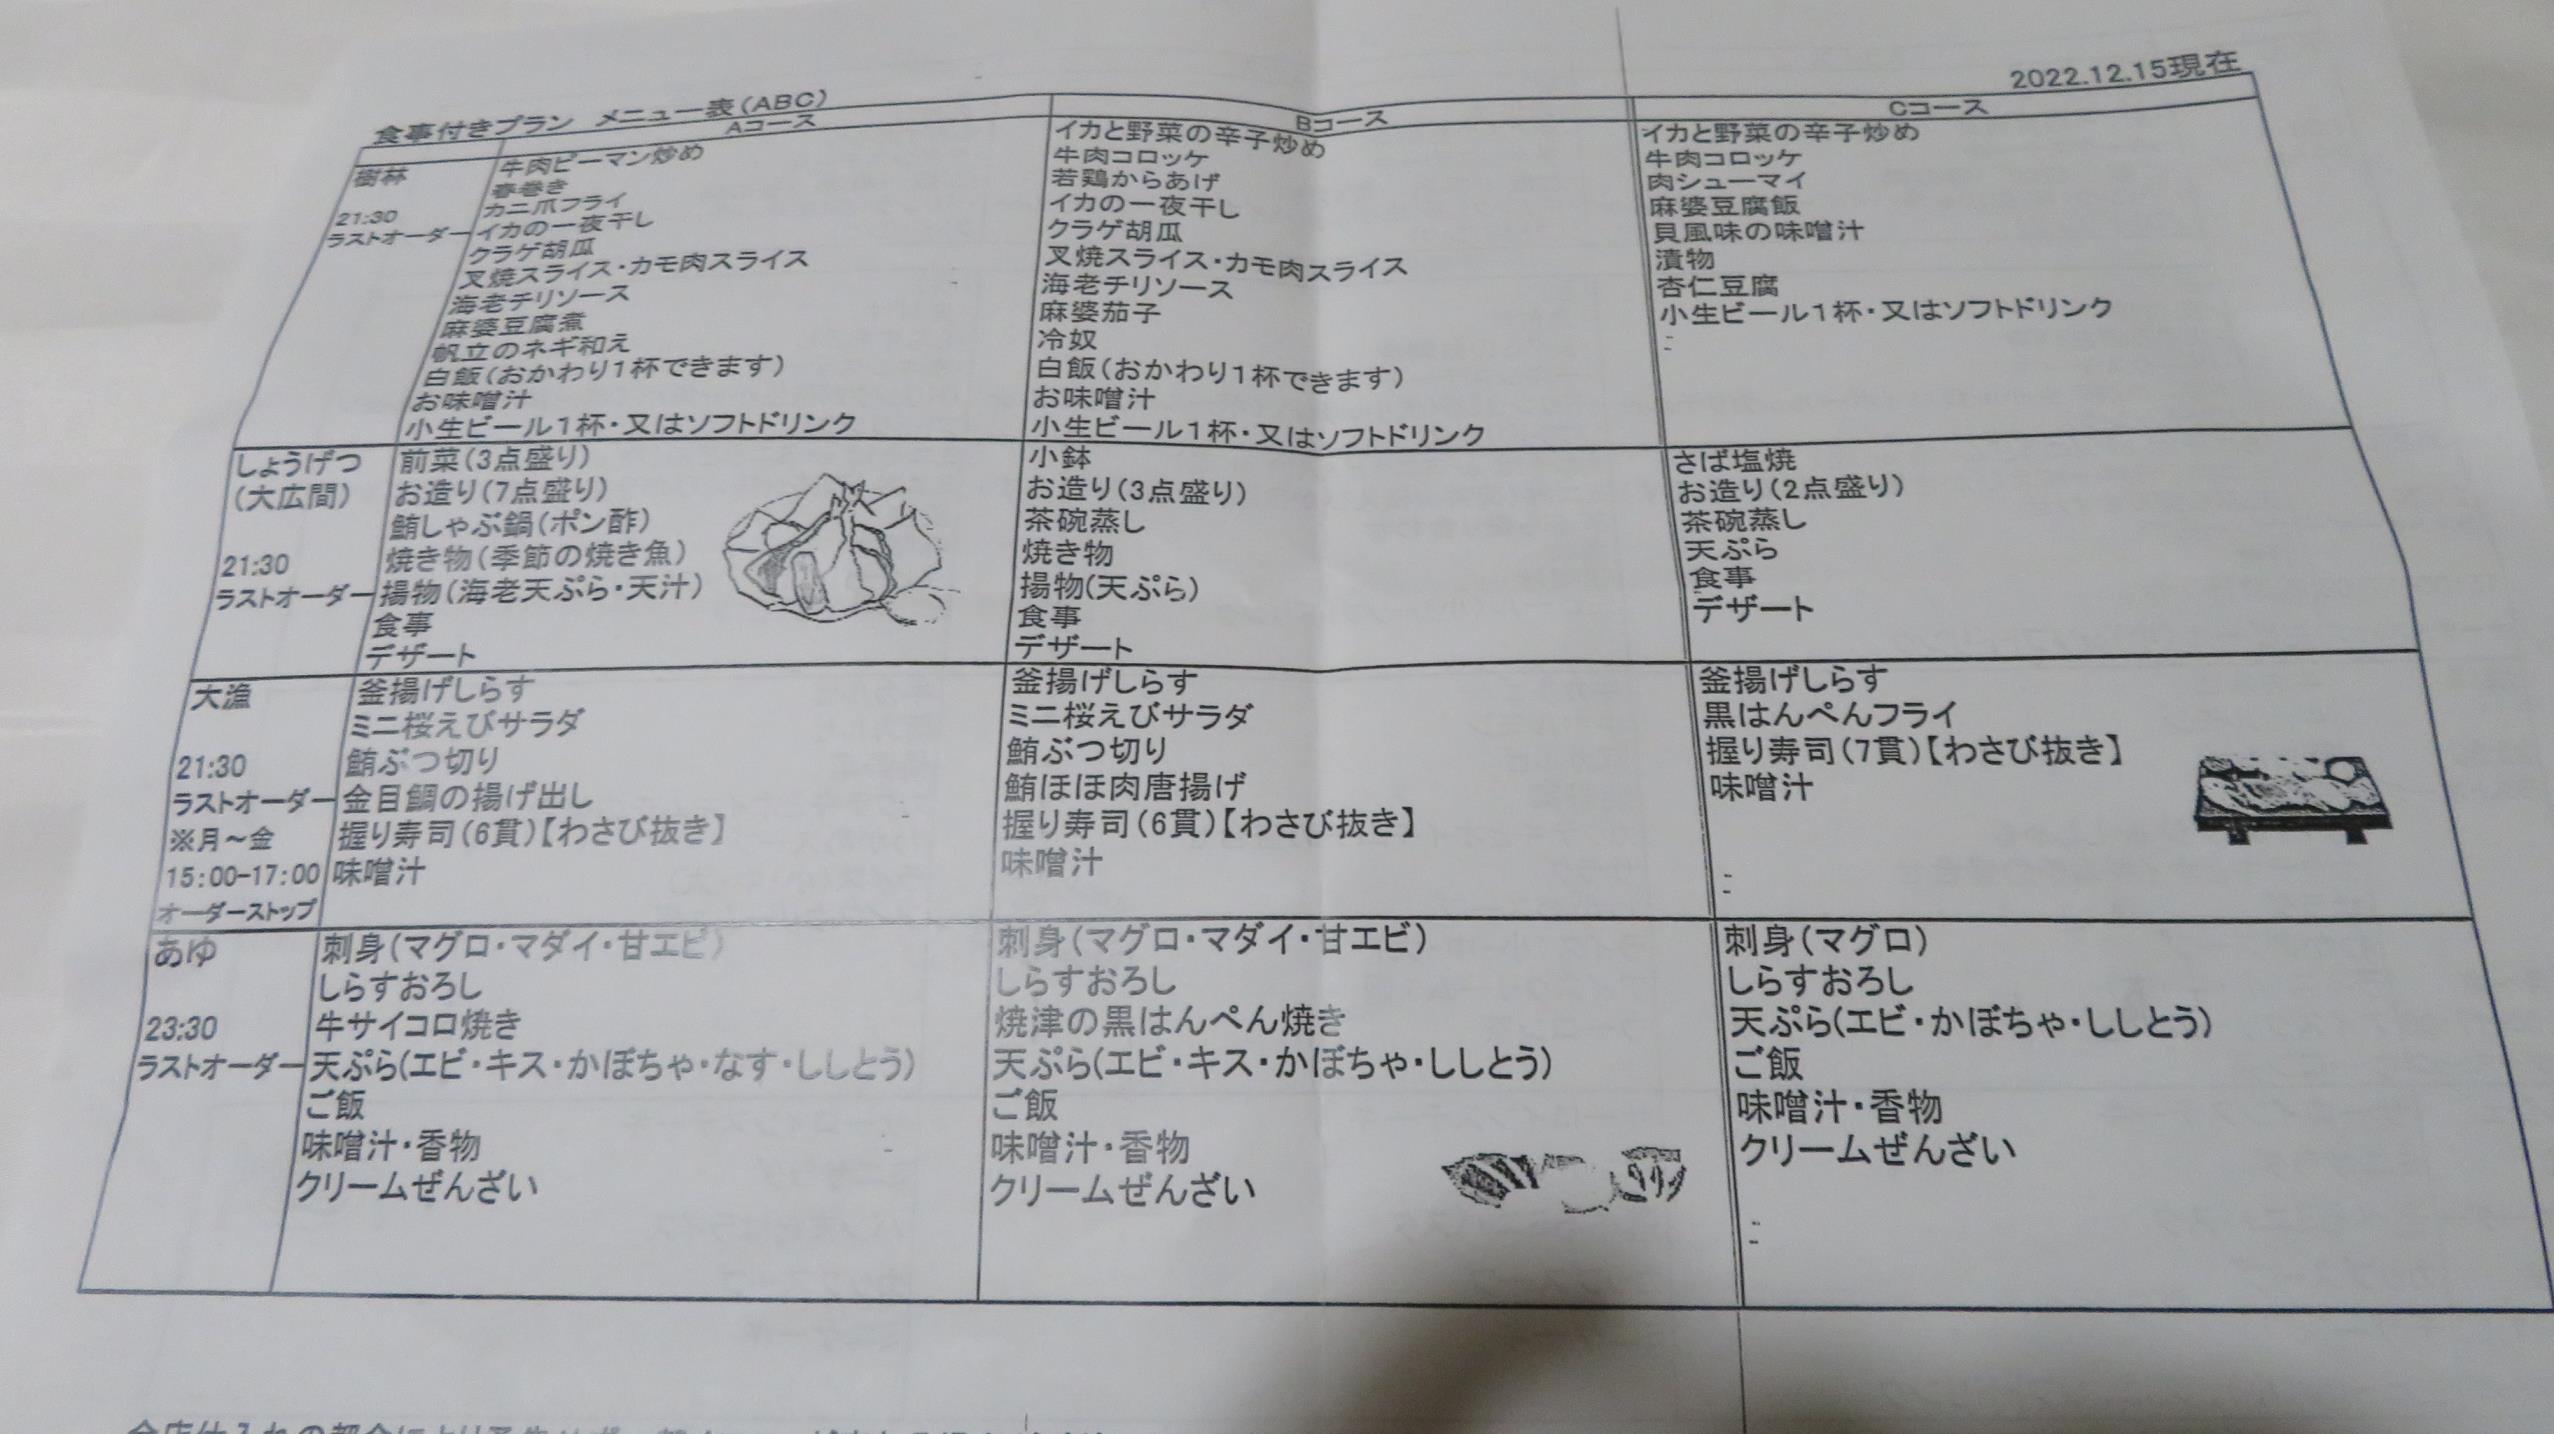 2022.12.15現在
食事付きプラン メニュー表(ABC)
Aコース
Bコース
Cコース
樹林
21:30
ラストオーダー
牛肉ピーマン炒め
春巻き
カニ爪フライ
イカの一夜干し
クラゲ胡瓜
叉焼スライス・カモ肉スライス
海老チリソース
麻婆豆腐煮
帆立のネギ和え
白飯(おかわり1杯できます)
お味噌汁
小生ビール1杯・又はソフトドリンク
イカと野菜の辛子炒め
牛肉コロッケ
若鶏からあげ
イカの一夜干し
クラゲ胡瓜
叉焼スライス・カモ肉スライス
海老チリソース
麻婆茄子
冷奴
白飯(おかわり1杯できます)
お味噌汁
小生ビール1杯・又はソフトドリンク
イカと野菜の辛子炒め
牛肉コロッケ
肉シューマイ
麻婆豆腐飯
貝風味の味噌汁
漬物
杏仁豆腐
小生ビール1杯・又はソフトドリンク
しょうげつ
(大広間)
21:30
ラストオーダー
前菜(3点盛り)
お造り(7点盛り)
鮪しゃぶ鍋(ポン酢)
焼き物(季節の焼き魚)
揚物(海老天ぷら・天汁)
食事
デザート
小鉢
お造り(3点盛り)
茶碗蒸し
焼き物
揚物(天ぷら)
食事
デザート
さば塩焼
お造り(2点盛り)
茶碗蒸し
天ぷら
食事
デザート
大漁
21:30
ラストオーダー
※月～金
15:00-17:00
オーダーストップ
釜揚げしらす
ミニ桜えびサラダ
鮪ぶつ切り
金目鯛の揚げ出し
握り寿司(6貫)【わさび抜き】
味噌汁
釜揚げしらす
ミニ桜えびサラダ
鮪ぶつ切り
鮪ほほ肉唐揚げ
握り寿司(6貫)【わさび抜き】
味噌汁
釜揚げしらす
黒はんぺんフライ
握り寿司(7貫)【わさび抜き】
味噌汁
あゆ
23:30
ラストオーダー
刺身(マグロ・マダイ・甘エビ)
しらすおろし
牛サイコロ焼き
天ぷら(エビ・キス・かぼちゃ・なす・ししとう)
ご飯
味噌汁・香物
クリームぜんざい
刺身(マグロ・マダイ・甘エビ)
しらすおろし
焼津の黒はんぺん焼き
天ぷら(エビ・キス・かぼちゃ・ししとう)
ご飯
味噌汁・香物
クリームぜんざい
刺身(マグロ)
しらすおろし
天ぷら(エビ・かぼちゃ・ししとう)
ご飯
味噌汁・香物
クリームぜんざい